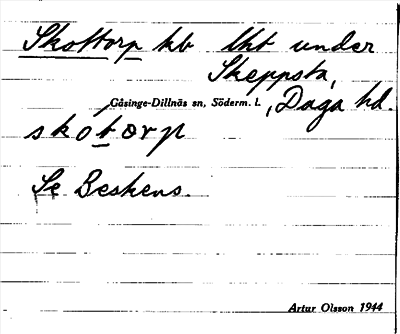 Skottorp kb lht under
Skeppsta,
Gåsinge-Dillnäs sn, Söderm. l., Daga hd.
skótorp
Se Beskens.
Artur Olsson 1944